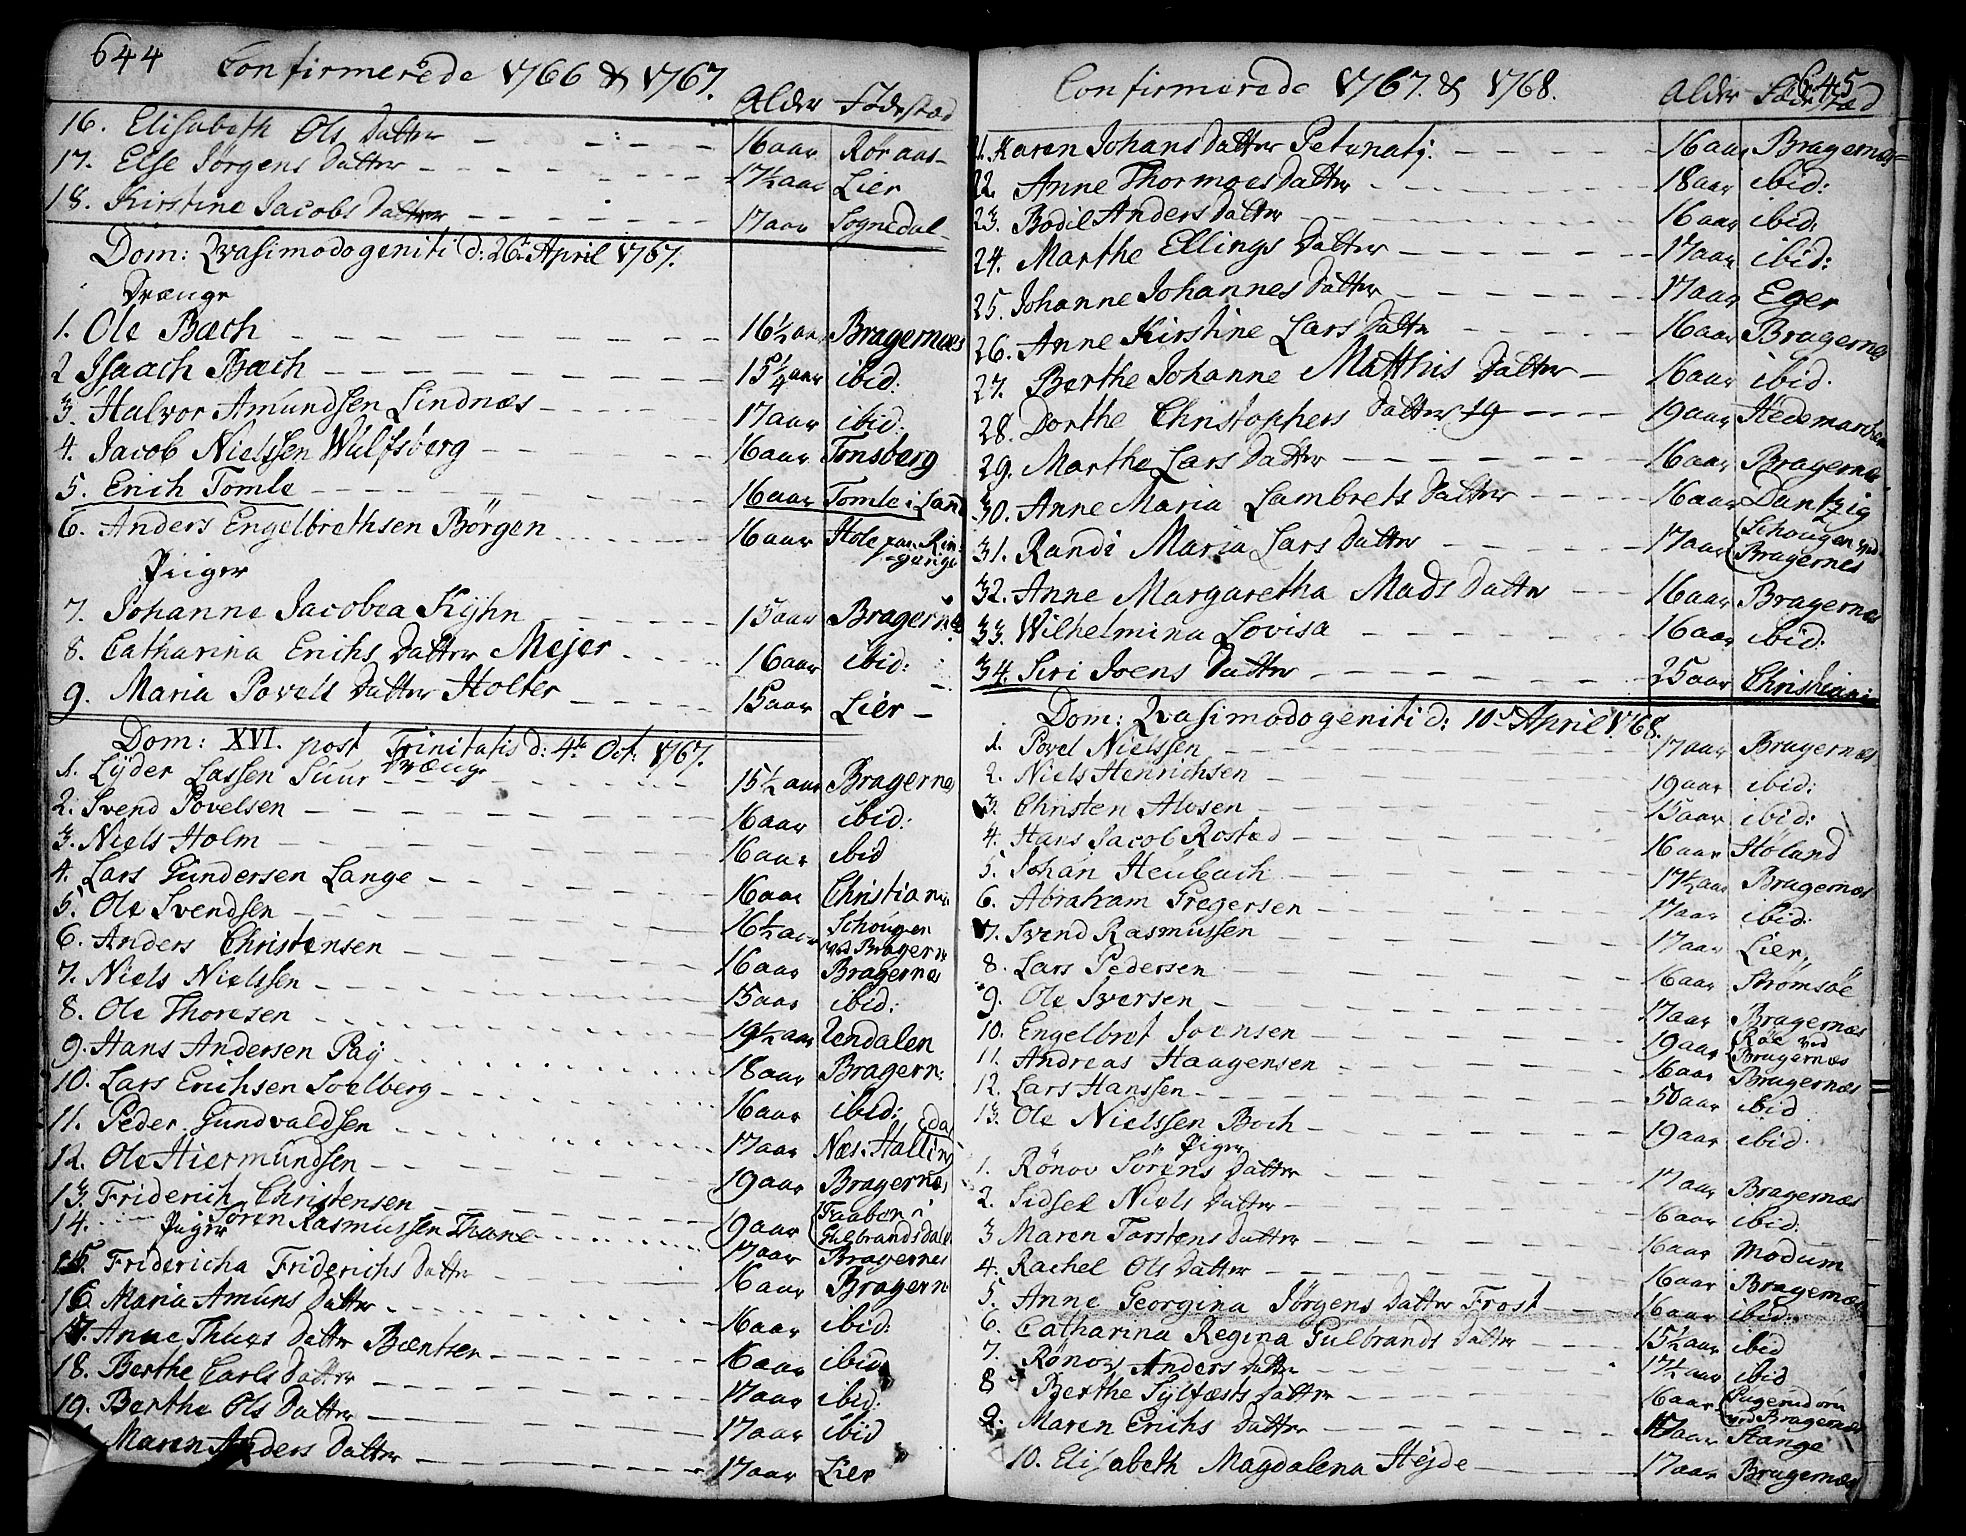 644
Confirmerede 1766 & 1767.
Alder Fødestæd
16. Elisabeth Ols Datter — 16 aar Røraas
17. Else Jørgens Datter — 17½ aar Lier
18. Kirstine Jacobs Datter — 17 aar Sognedal
Dom: Qvasimodogeniti d: 26de April 1767.
Drænge
1. Ole Bæch — 16½ aar Bragernæs
2 Isaach Bæch — 15¼ aar ibid:
3. Halvor Amundsen Lindnæs — 17 aar ibid:
4. Jacob Nielssen Wulfsberg — 16 aar Tonsberg
5. Erich Tomle — 16 aar Tomle i Land
6. Anders Engelbrethsen Börgen — 16 aar Hole paa Ringerige
Piiger
7. Johanna Jacobea Kyhn — 15 aar Bragernæs
8. Catharina Erichs Datter Mejer — 16 aar ibid:
9. Maria Povels Datter Holter — 15 aar Lier
Dom: XVI. post Trinitatis d: 4de Oct: 1767.
Drænge
1. Lyder Lassen Suur — 15½ aar Bragernæs
2. Svend Povelsen — 16 aar ibid:
3. Niels Holm — 16 aar ibid
4. Lars Gundersen Lange — 16 aar Christiania
5. Ole Svendsen — 16½ aar Schougen ved Bragernæs
6. Anders Christensen — 16 aar Bragernæs
7. Niels Nielssen — 15 aar ibid:
8. Ole Thoresen — 19½ aar Rendalen
9. Hans Andersen Paÿ — 18 aar Bragern:
10. Lars Erichsen Soelberg — 16 aar ibid:
11. Peder Gundvaldsen — 17 aar Næs i Hallingdal
12. Ole Hiermundsen — 19 aar Bragernæs
13. Friderich Christensen — 19 aar Faaberg i Gulbrandsdal
14. Sören Rasmussen Thane — 17 aar Bragernes
Piiger
15. Fridericha Friderichs Datter — 16 aar Bragern
16. Maria Amuns Datter — 16 aar ibid:
17. Anne Thues Datter Bentsen — 16 aar ibid
18. Berthe Carls Datter — 17 aar ibid:
19. Berthe Ols Datter — 17 aar ibid
Maren Anders Datter — 17 aar Lier
645
Confirmerede 1767. & 1768.
Alder Fødestæd
21. Karen Johans Datter — 16 aar Bragernæs
22. Anne Thormoes Datter — 18 aar ibid:
23. Bodil Anders Datter — 16 aar ibid:
24. Marthe Ellings Datter — 17 aar ibid:
25. Johanne Johannes Datter — 17 aar Eger
26. Anne Kirstine Lars Datter — 16 aar Bragernæs
27. Berthe Johanne Matthis Datter — 16 aar ibid.
28. Dorthe Christophers Datter 19 — 19 aar Hedemarchen
29. Marthe Lars Datter — 16 aar Bragernæs
30. Anne Maria Lambrets Datter — 16 aar Dantzig
31. Randi Maria Lars Datter — 17 aar Schougen ved Bragernes
32. Anne Margaretha Mads Datter — 16 aar Bragernæs
33. Wilhelmina Lovisa — 16 aar ibid:
34. Siri Joens Datter — 25 aar Christiania
Dom: Qvasimodogeniti d: 10de April 1768.
1. Povel Nielssen — 17 aar Bragernæs
2. Niels Henrichsen — 19 aar ibid:
3. Christen Alvsen — 15 aar ibid:
4. Hans Jacob Rostad — 16 aar Høland
5. Johan Heubach — 17½ aar Bragernæs
6. Abraham Gregersen — 17 aar ibid:
7. Svend Rasmussen — 17 aar Lier
8. Lars Pedersen — 16 aar Strømsöe
9. Ole Iversen — 17 aar Bragernæs
10. Engelbret Joensen — 19 aar Röe ved Bragernæs
11. Andreas Haagensen — 16 aar Bragernæs
12. Lars Hanssen — 50 aar ibid
13. Ole Nielssen Boch — 19 aar ibid.
Piger
1. Rönov Sörens Datter — 17 aar Bragernæs
2. Sidsel Niels Datter — 16 aar ibid:
3 Maren Torstens Datter — 16 aar Modum
4. Rachel Ols Datter — 16 aar Bragernæs
5. Anne Georgina Jörgens Datter Frost — 16 aar ibid:
6. Catharina Regina Gulbrands Datter — 15½ aar ibid
7. Rönov Anders Datter — 17½ aar ibid
8 Berthe Sylfæsts Datter — 16 aar ved Bragernæs
9. Maren Erichs Datter — 17 aar Stange
10. Elisabeth Magdalena Hejde — 17 aar Bragernæs